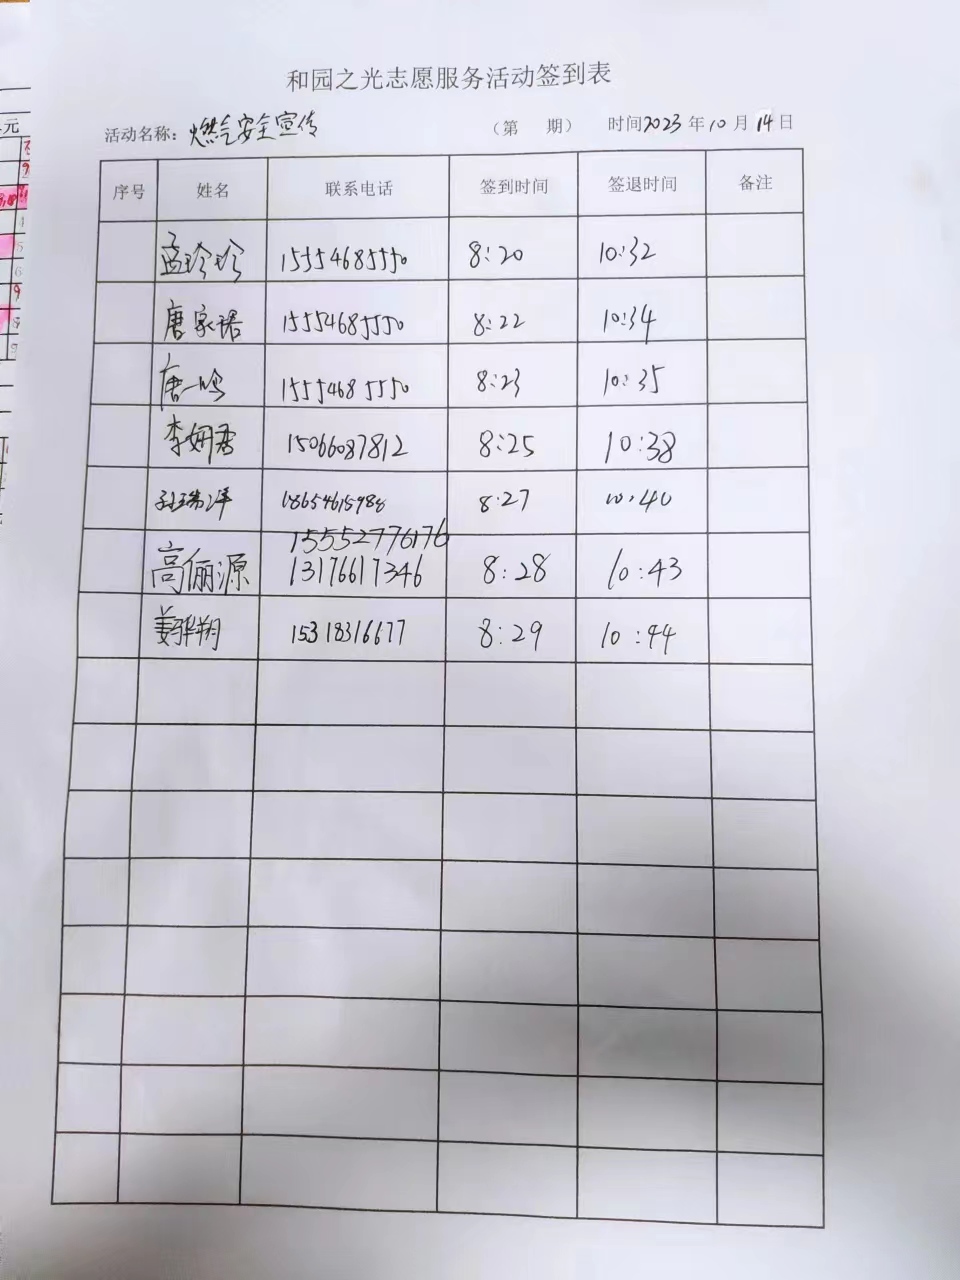 和园之光志愿服务活动签到表
活动名称：燃气安全宣传 （第 期） 时间2023年10月14日
序号 姓名 联系电话 签到时间 签退时间 备注
孟珍珍 15554685550 8:20 10:32
唐家诺 15554685550 8:22 10:34
唐一鸣 15554685550 8:23 10:35
李妍君 15066087812 8:25 10:38
孙瑞泽 18654615988 8:27 10:40
15552776176
高俪源 13176617346 8:28 10:43
姜骅翔 15318316677 8:29 10:44
元